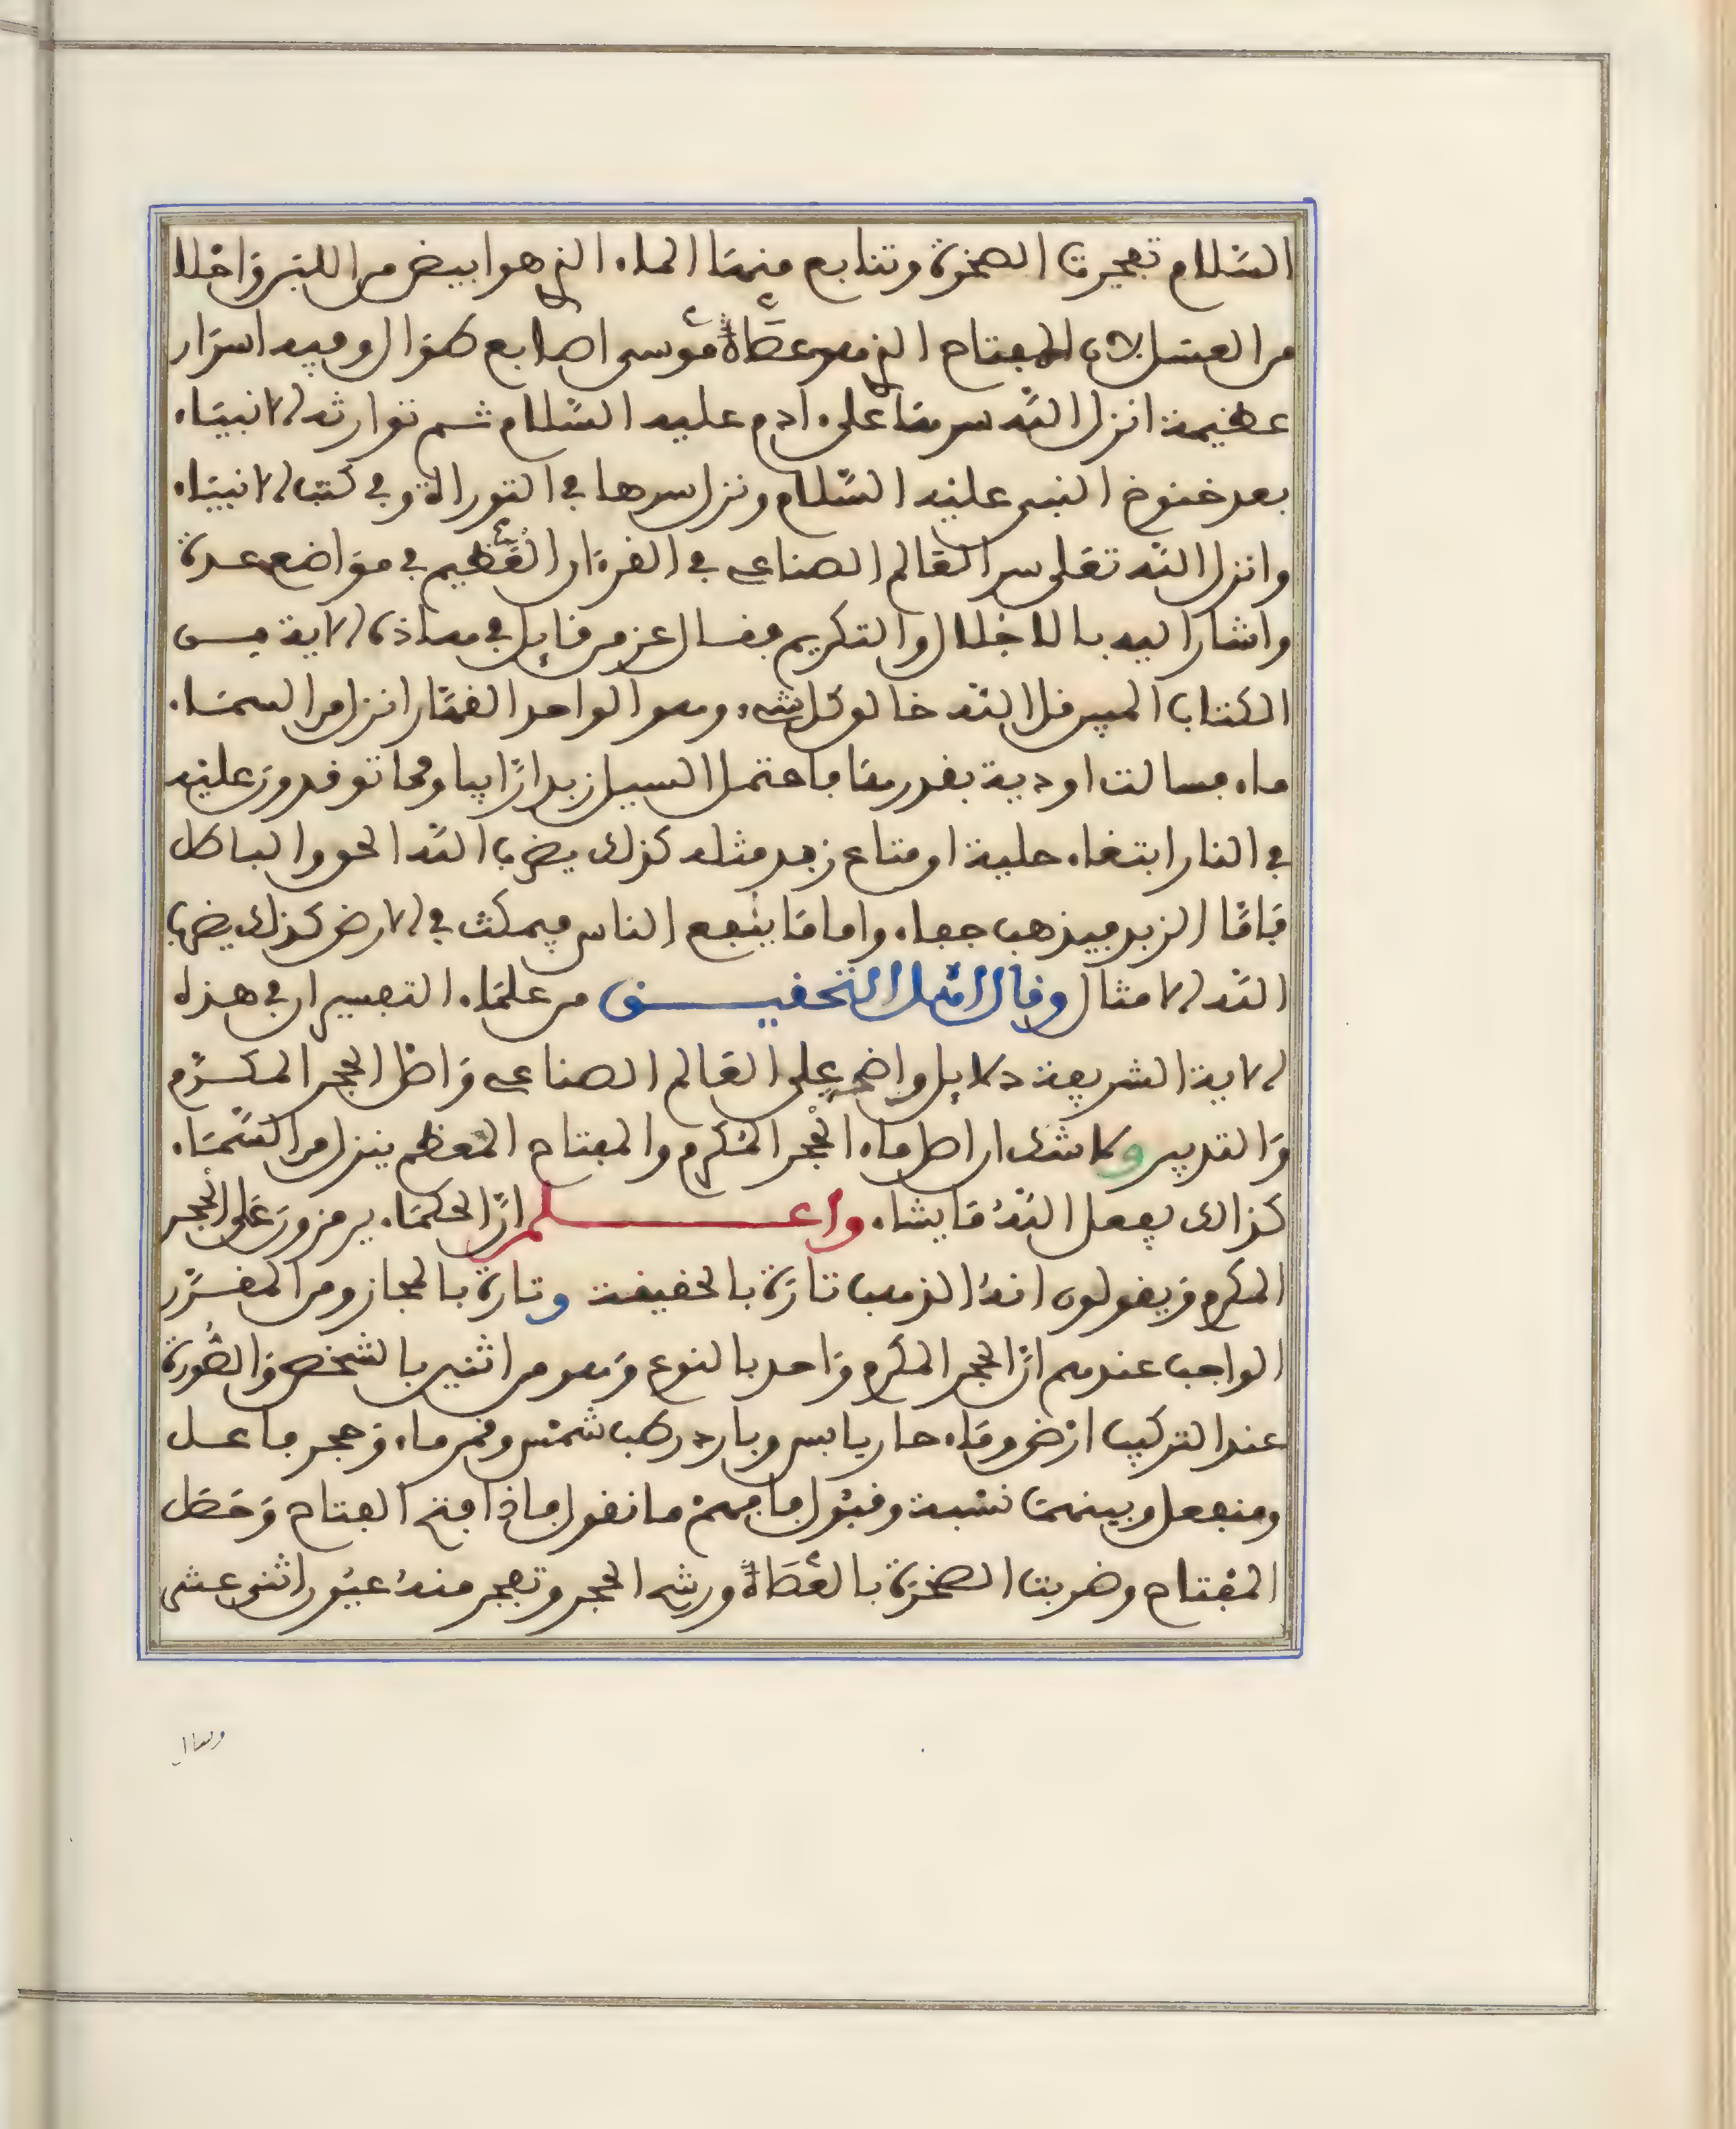 السّلام تفجرت الصخرة وتتابع منها الماء الذي هو ابيض من اللبن واحلا
من العسل لان المفتاح الذي هو عصاة موسى اصابع كنوز ال وفيه اسرار
عظيمة انزل الله سرها على ادم عليه السّلام ثم توارثه الانبياء
بعد خنوخ النبي عليه السّلام ونزل سرها في التوراة وفي كتب الانبياء
وانزل الله تعلى سر العالم الصناعي في القرءان العظيم في مواضع عدة
واشار اليه بالاجلال والتكريم فقال عز من قايل في هاذه الاية من
الكتاب المبين قل الله خالق كل شيء وهو الواحد القهّار انزل من السماء
ماء فسالت اودية بقدرها فاحتمل السيل زبدا رّابيا ومما توقدون عليه
في النار ابتغاء حلية او متاع زبد مثله كذلك يضرب الله الحق والباطل
فامّا الزبد فيذهب جفاء واما ما ينفع الناس فيمكث في الارض كذلك يضرب
الله الامثال وقال اهل التحقيق من علماء التفسير ان في هذه
الاية الشريفة دلايل واضحة على العالم الصناعي واصل الحجر المكرّم
والتدبير ولا شك ان اصل ماء الحجر المكرم والمفتاح المعظم ينزل من السّماء
كذالك يفعل الله ما يشاء واعلم انّ الحكماء يرمزون على الحجر
المكرم ويقولون انه الذهب تارة بالحقيقة وتارة بالمجاز ومن المقرّر
الواجب عندهم انّ الحجر المكرم واحد بالنوع وهو من اثنين بالشخص والصّورة
عند التركيب ارض وماء حار يابس وبارد رطب شمس وقمر ماء وحجر فاعل
ومنفعل وبينهما نسبة وقبول فافهم ما نقول فاذا فتح المفتاح وحصل
المفتاح وضربت الصخرة بالعصاة ورش الحجر وتفجر منه عيون اثنى عشر
وسال